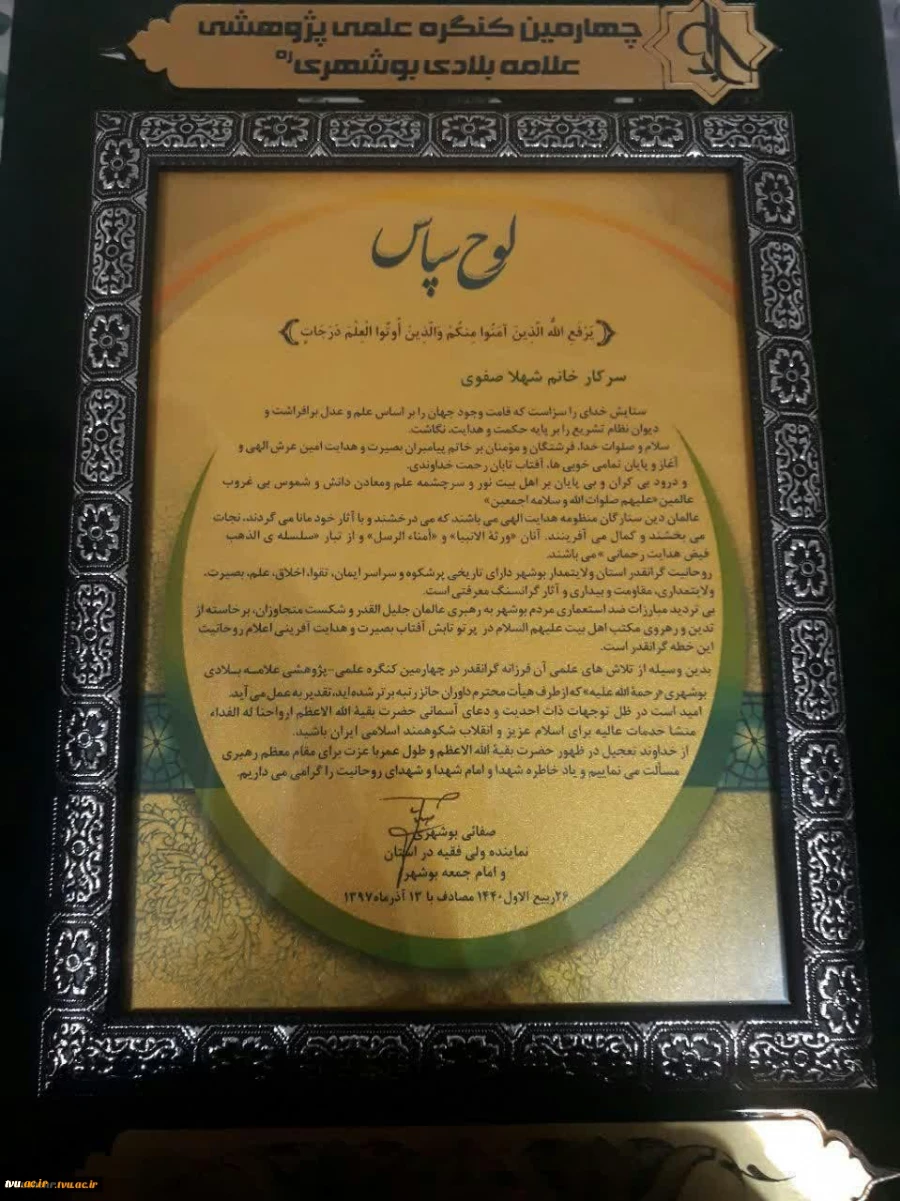 چهارمین کنگره علمی پژوهشی
علامه بلادی بوشهری ره
لوح سپاس
یَرْفَعِ اللَّهُ الَّذِینَ آمَنُوا مِنْکُمْ وَالَّذِینَ أُوتُوا الْعِلْمَ دَرَجَاتٍ
سرکار خانم شهلا صفوی
ستایش خدای را سزاست که قامت وجود جهان را بر اساس علم و عدل برافراشت و
دیوان نظام تشریع را بر پایه حکمت و هدایت، نگاشت.
سلام و صلوات خدا، فرشتگان و مؤمنان بر خاتم پیامبران بصیرت و هدایت امین عرش الهی و
آغاز و پایان تمامی خوبی ها، آفتاب تابان رحمت خداوندی.
و درود بی کران و بی پایان بر اهل بیت نور و سرچشمه علم ومعادن دانش و شموس بی غروب
عالمین «علیهم صلوات الله و سلامه اجمعین»
عالمان دین ستارگان منظومه هدایت الهی می باشند که می درخشند و با آثار خود مانا می گردند، نجات
می بخشند و کمال می آفرینند. آنان «ورثة الانبیا» و «أمناء الرسل» و از تبار «سلسله ی الذهب
فیض هدایت رحمانی» می باشند.
روحانیت گرانقدر استان ولایتمدار بوشهر دارای تاریخی پرشکوه و سراسر ایمان، تقوا، اخلاق، علم، بصیرت،
ولایتمداری، مقاومت و بیداری و آثار گرانسنگ معرفتی است.
بی تردید مبارزات ضد استعماری مردم بوشهر به رهبری عالمان جلیل القدر و شکست متجاوزان، برخاسته از
تدین و رهروی مکتب اهل بیت علیهم السلام در پرتو تابش آفتاب بصیرت و هدایت آفرینی اعلام روحانیت
این خطه گرانقدر است.
بدین وسیله از تلاش های علمی آن فرزانه گرانقدر در چهارمین کنگره علمی-پژوهشی علامه بلادی
بوشهری «رحمة الله علیه» که از طرف هیأت محترم داوران حائز رتبه برتر شده اید، تقدیر به عمل می آید.
امید است در ظل توجهات ذات احدیت و دعای آسمانی حضرت بقیة الله الاعظم ارواحنا له الفداء
منشا خدمات عالیه برای اسلام عزیز و انقلاب شکوهمند اسلامی ایران باشید.
از خداوند تعجیل در ظهور حضرت بقیة الله الاعظم و طول عمر با عزت برای مقام معظم رهبری
مسألت می نماییم و یاد خاطره شهدا و امام شهدا و شهدای روحانیت را گرامی می داریم.
صفائی بوشهری
نماینده ولی فقیه در استان
و امام جمعه بوشهر
۲۶ ربیع الاول ۱۴۴۰ مصادف با ۱۳ آذر ماه ۱۳۹۷
tvu.ac.ir